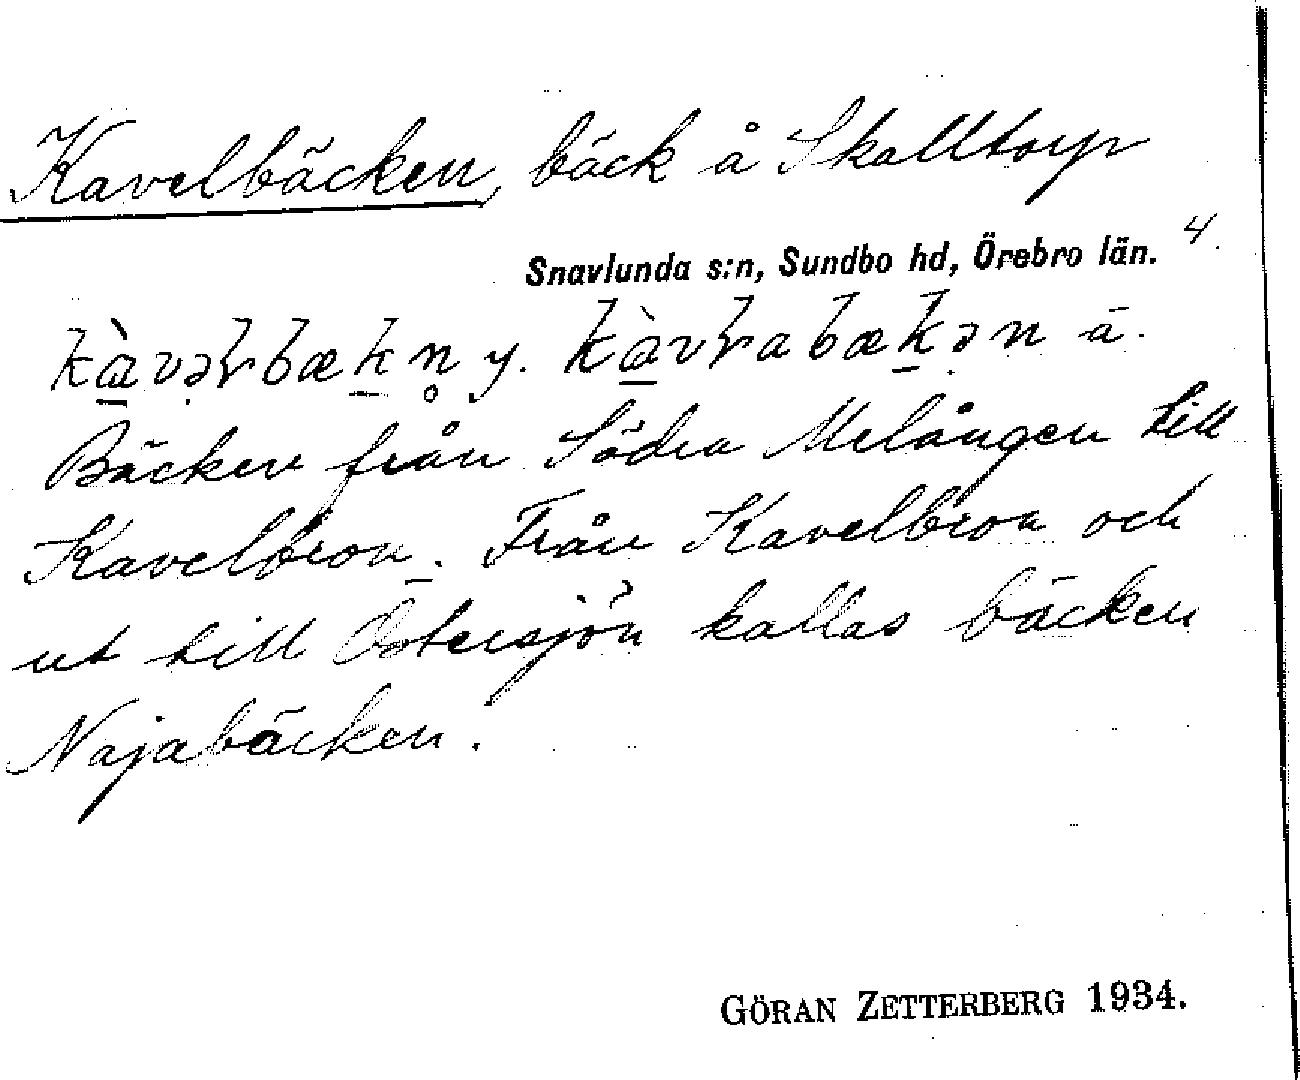 Kavelbäcken, bäck å Skalltorp
Snavlunda s:n, Sundbo hd, Örebro län. 4.
kàvəɽbækn̥ y. kàvɽabækən ä.
Bäcken från Södra Melången till
Kavelbron. Från Kavelbron och
ut till Östersjön kallas bäcken
Najabäcken.
GÖRAN ZETTERBERG 1934.